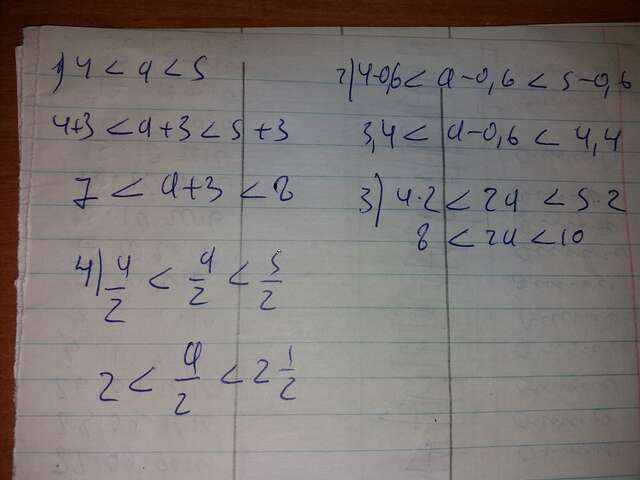 1) 4 < a < 5
4+3 < a+3 < 5+3
7 < a+3 < 8
4) 4/2 < a/2 < 5/2
2 < a/2 < 2 1/2
2) 4-0,6 < a-0,6 < 5-0,6
3,4 < a-0,6 < 4,4
3) 4·2 < 2a < 5·2
8 < 2a < 10